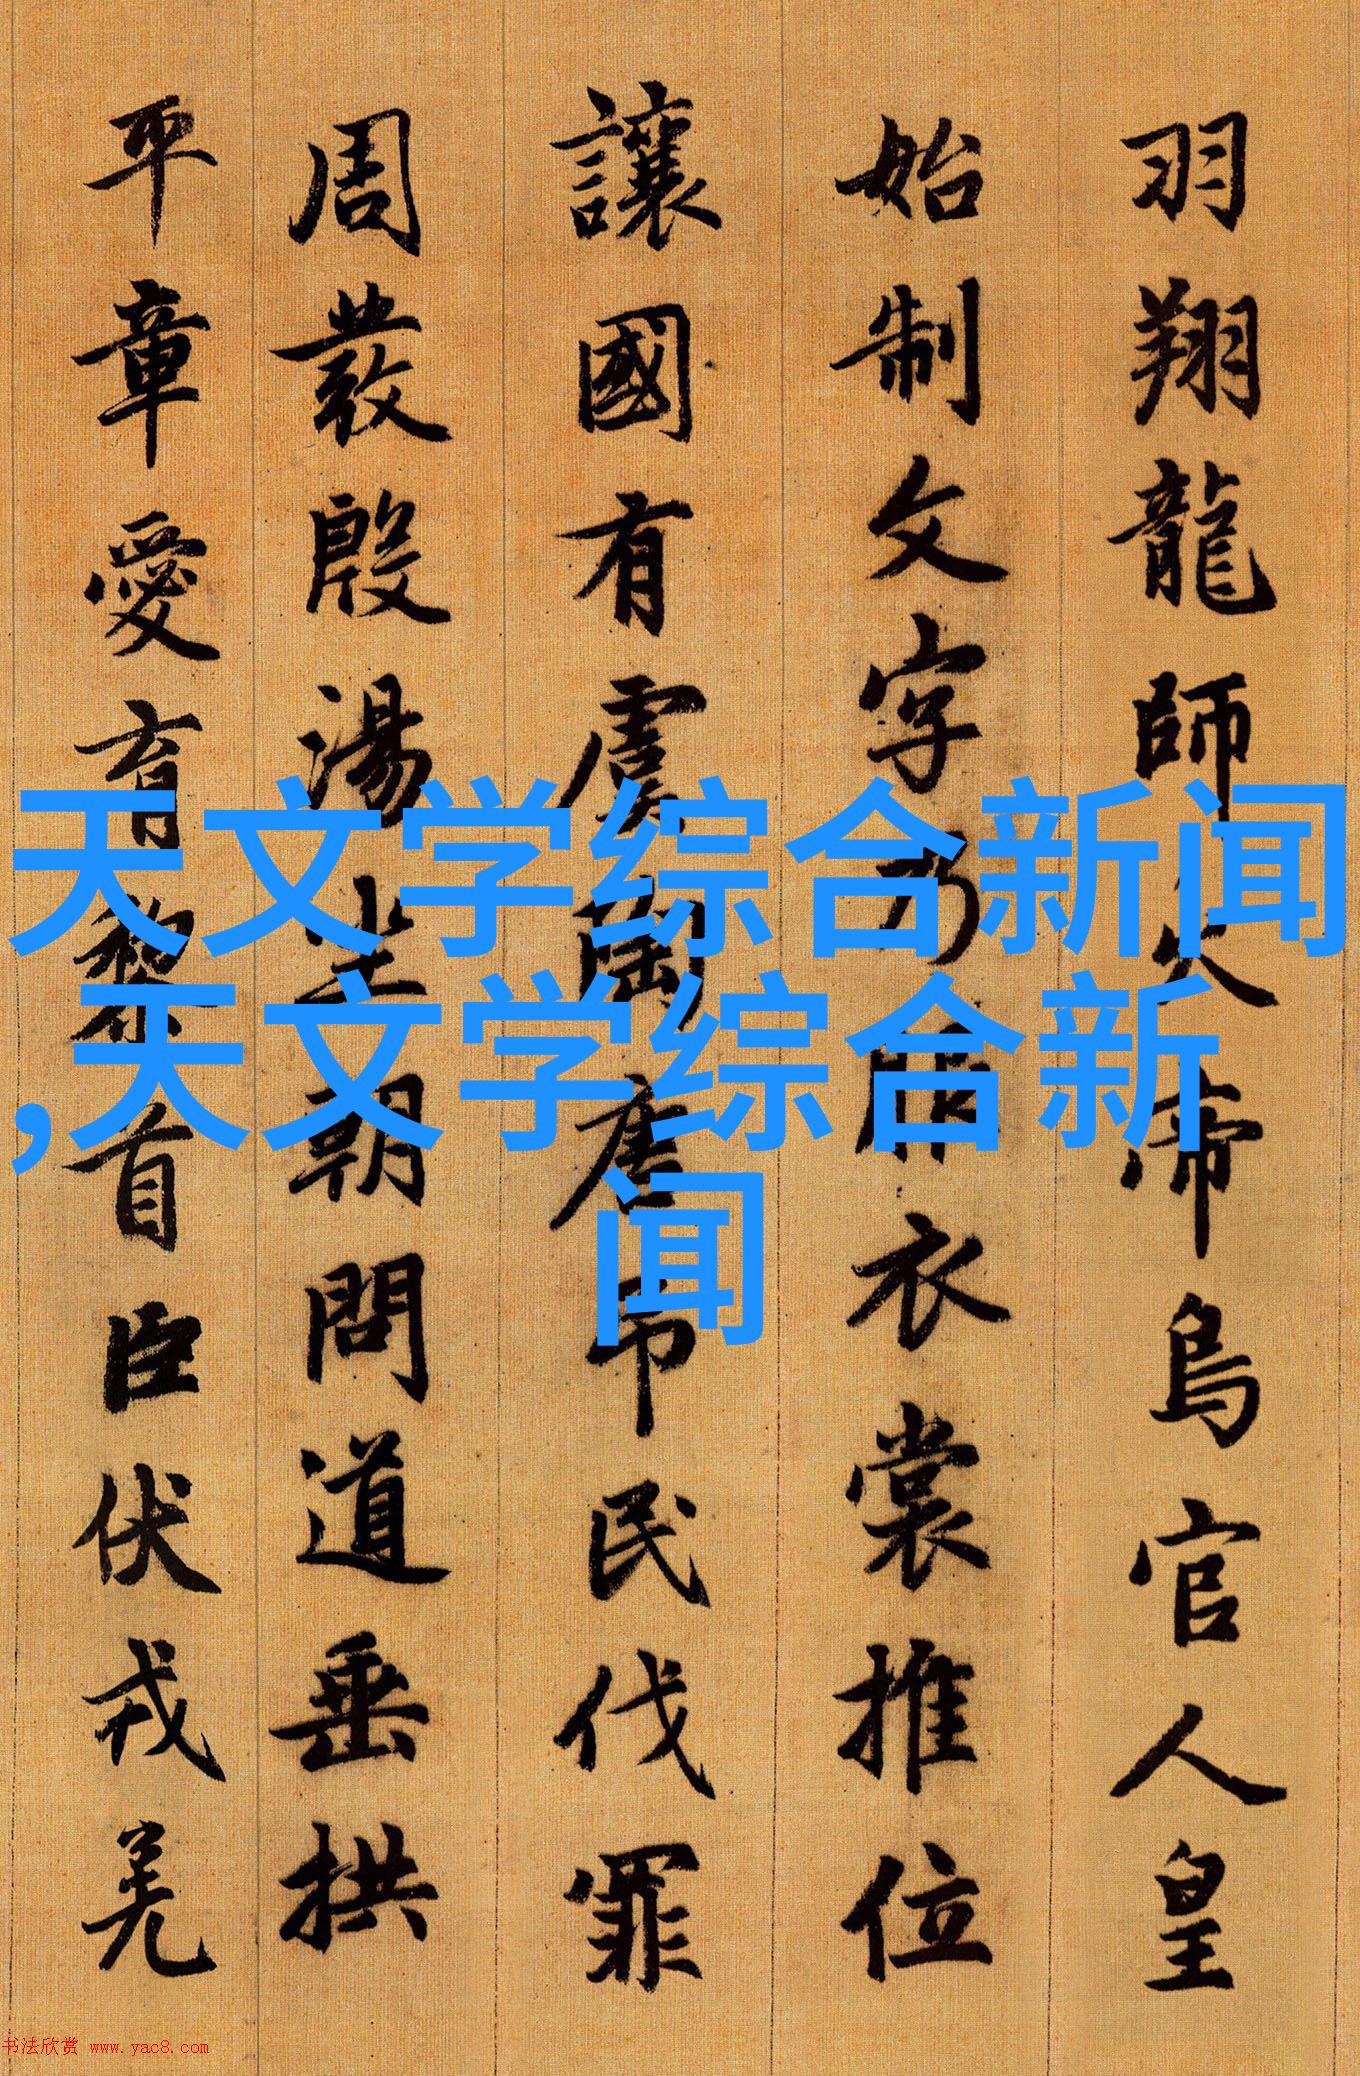 羽翔龍師火帝鳥官人皇
始制文字乃服衣裳推位
讓國有虞陶唐吊民伐罪
周發殷湯坐朝問道垂拱
平章愛育黎首臣伏戎羌
天文学综合新闻
,天文学综合新
闻
书法欣赏 www.yac8.com